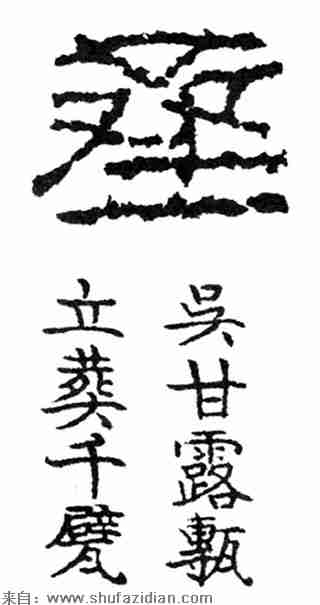 吳甘露甎
立葬千甓
来自：www.shufazidian.com